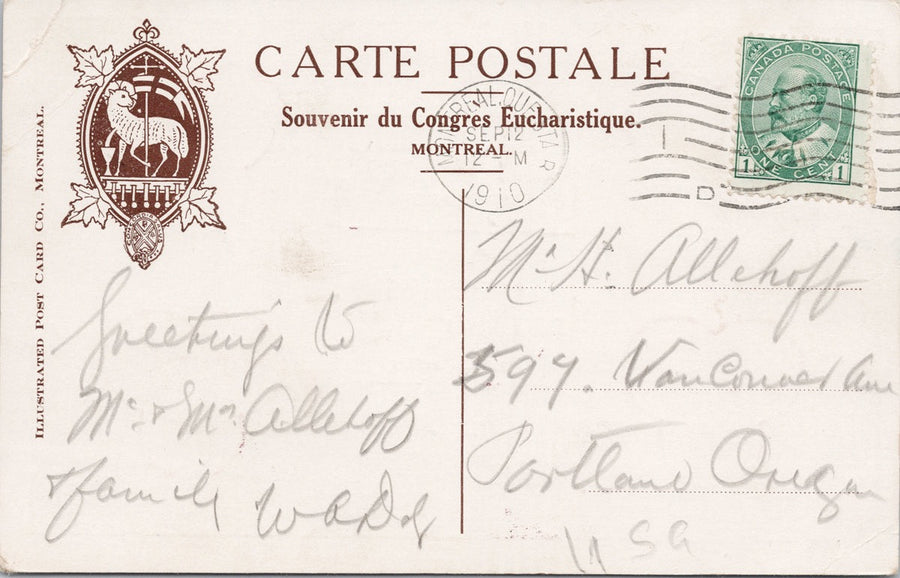 CARTE POSTALE
Souvenir du Congres Eucharistique.
MONTREAL.
ILLUSTRATED POST CARD CO., MONTREAL.
MONTREAL, QUE STAR
SEP 12
12 - M
1910
D
CANADA POSTAGE
1 ONE CENT 1
Mr H. Allehoff
597. Vancouver Ave
Portland Oregon
USA
Greetings to
Mr. & Mrs Allehoff
& family